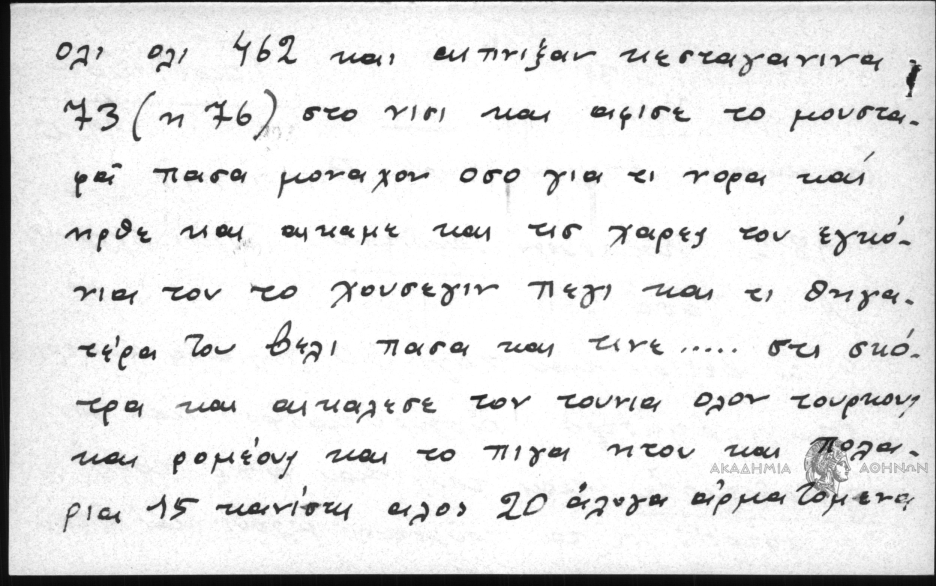 ολι ολι 462 και επνιξαν κεσταγανινα
73 (η 76) στο νισι και αφισε το μουστα-
φα πασα μοναχον οσο για τι νορα και
ηρθε και εκαμε και τις χαρες του εγκό-
νια του το χουσεγιν πεγι και τι θηγα-
τέρα του βελι πασα και τινε ..... στι σκό-
τρα και εκαλεσε τον τουνια ολον τουρκους
και ρομέους και το πιγα ητον και πολα-
ρια 15 κανίστι αλος 20 άλογα άρματομενα
ΑΚΑΔΗΜΙΑ ΑΘΗΝΩΝ